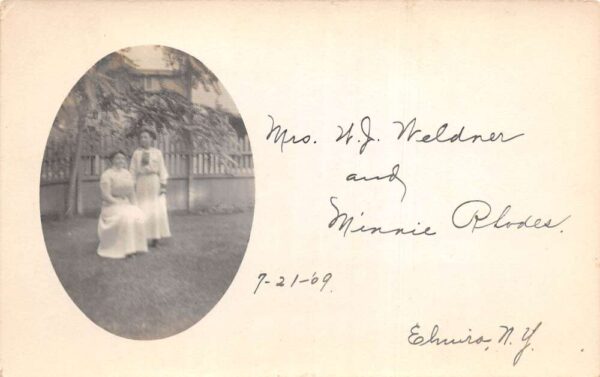 Mrs. W.J. Weldner
and
Minnie Rhodes.
7-21-'09
Elmira, N.Y.